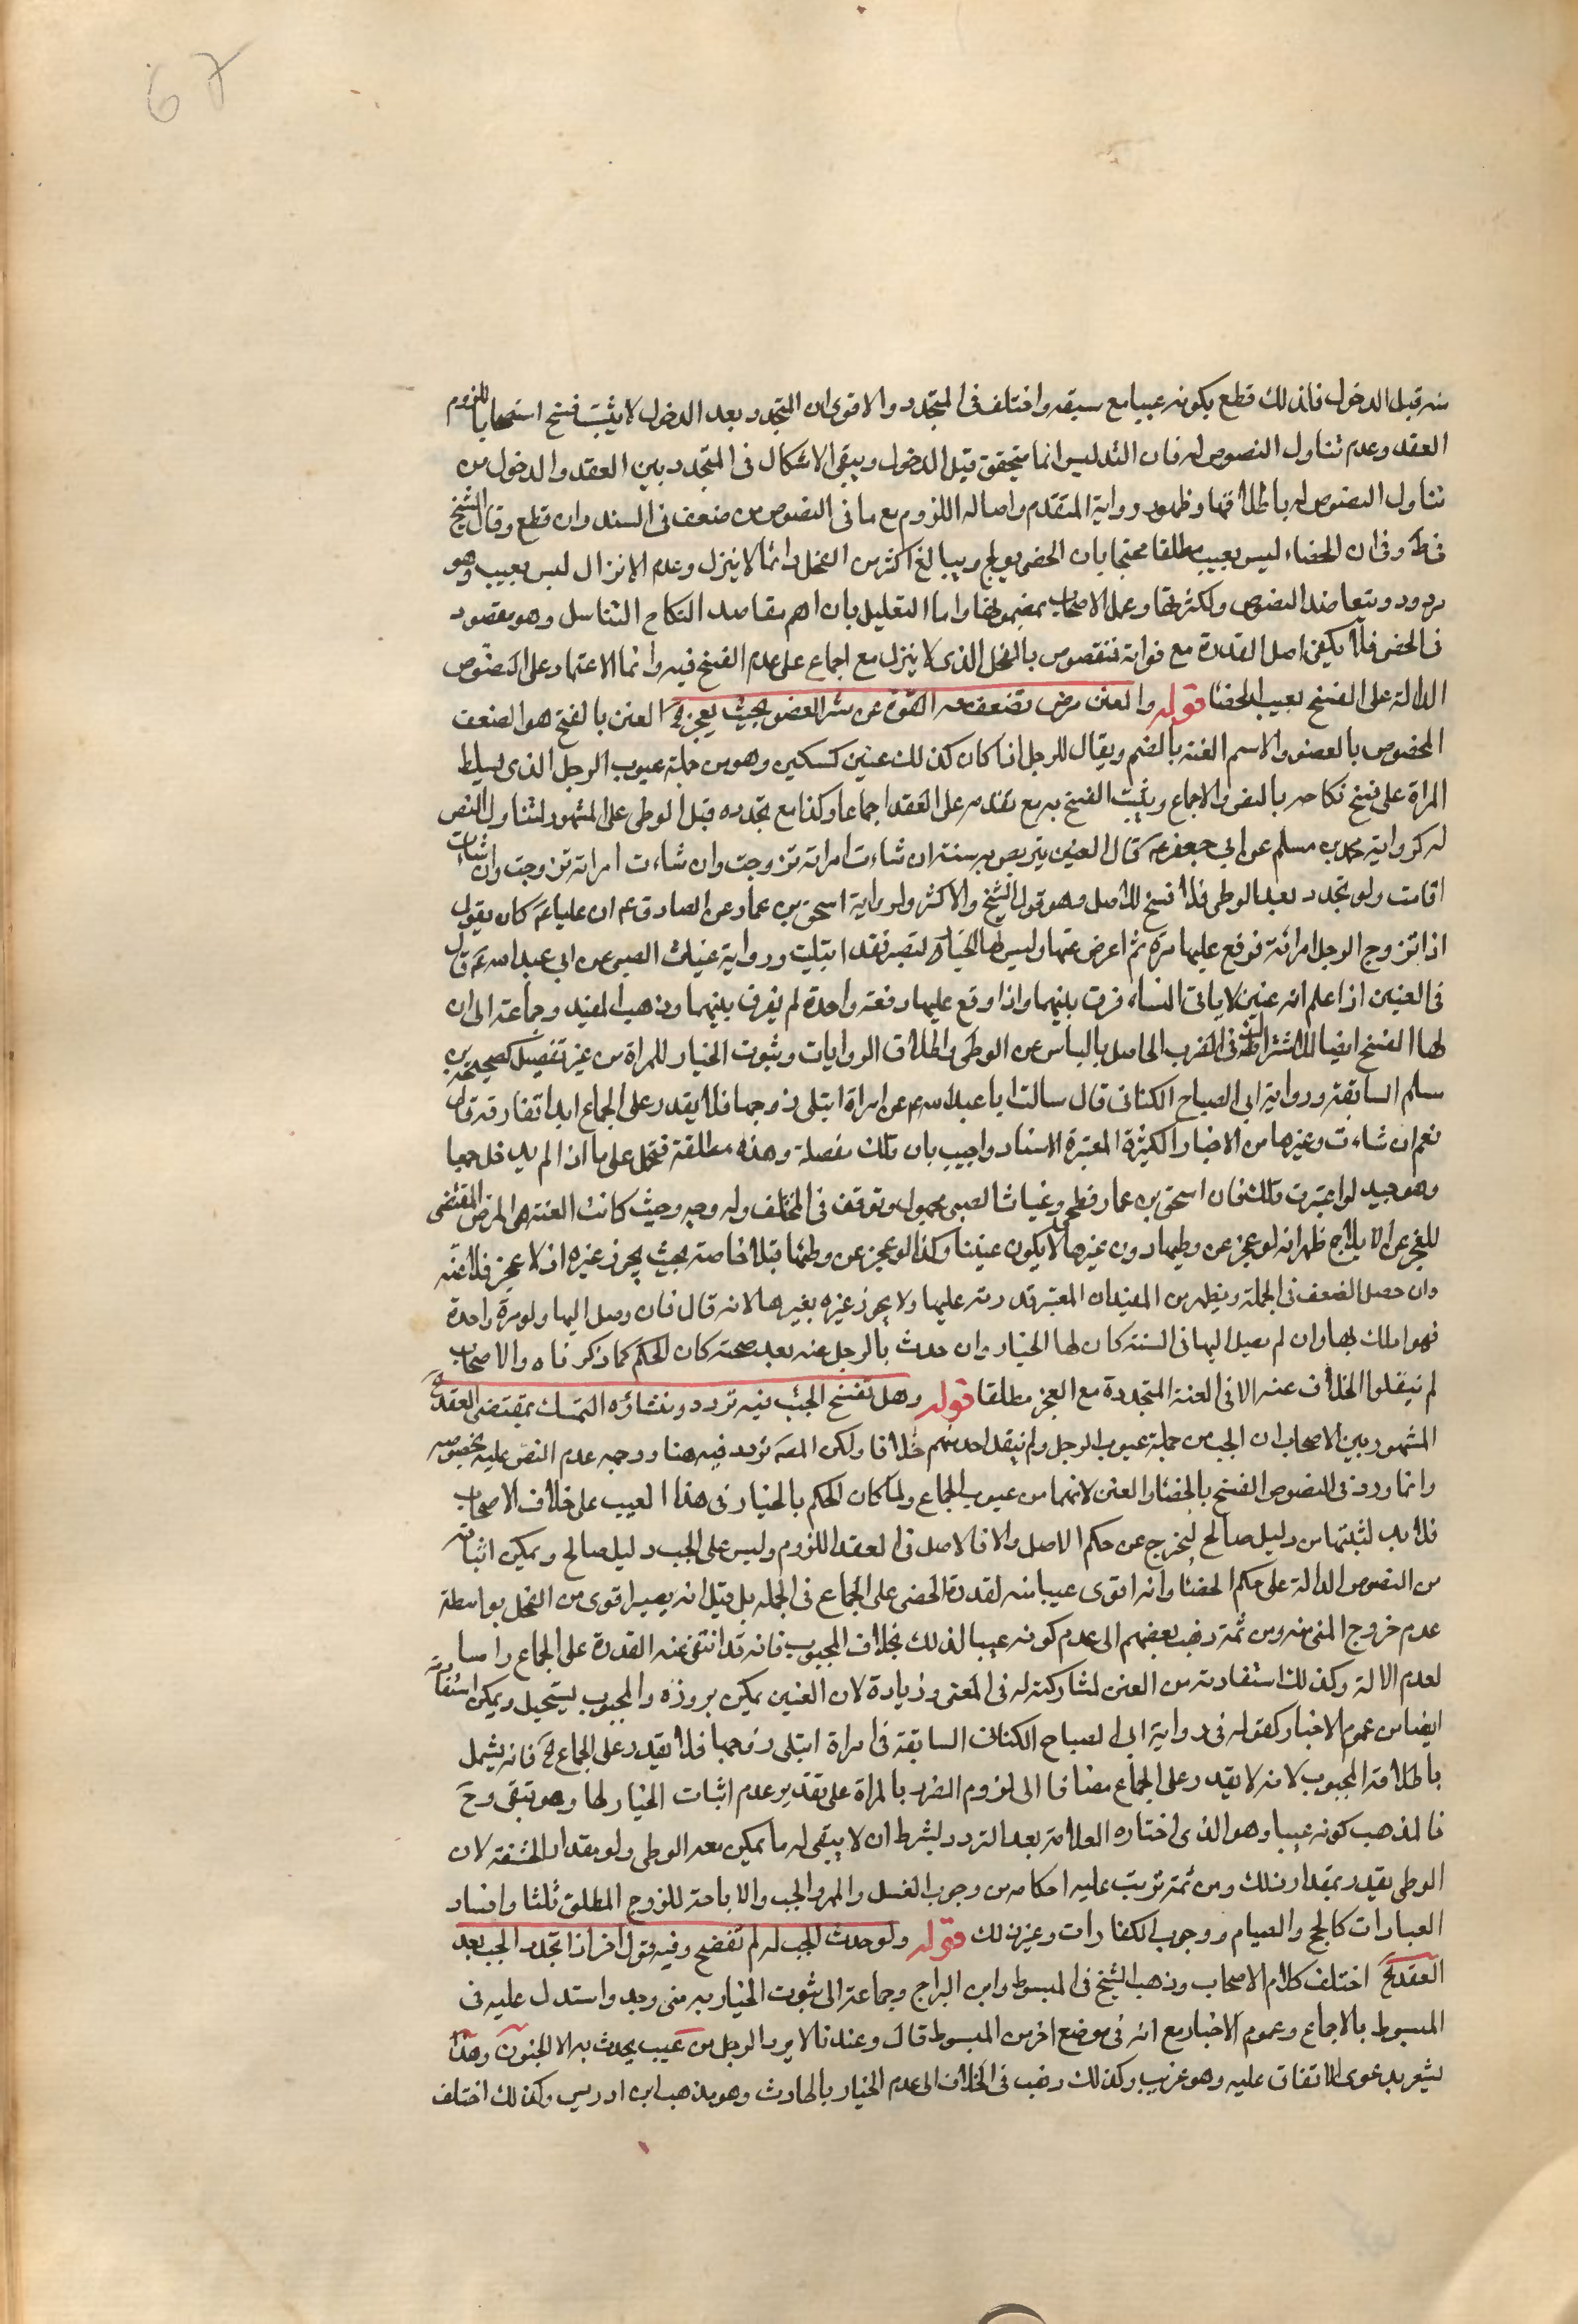 67
منه قبل الدخول فاذ لك قطع بكونه عيبا مع سبقه واختلف فى المتجدد والاقوى ان المتجدد بعد الدخول لا يثبت فسخ استصحابا للزوم
العقد وعدم تناول النصوص له فان التدليس انما يتحقق قبل الدخول ويبقى الاشكال فى المتجدد بين العقد والدخول من
تناول النصوص له باطلاقها وظهور رواية المتقدم واصالة اللزوم مع ما فى النصوص من ضعف فى السند وان قطع وقال الشيخ
فى ط و ف ان الخصاء ليس بعيب مطلقا محتجا بان الخصى يولج ويبالغ اكثر من الفحل وانما لا ينزل وعدم الانزال ليس بعيب وهو
مردود وبتعاضد النصوص ولكثرتها وعمل الاصحاب بمضمونها واما التعليل بان اهم مقاصد النكاح التناسل وهو مقصود
فى الخصى فلا يكفى اصل القدرة مع فواته فمنقوص بالفحل الذى لا ينزل مع اجماع على عدم الفسخ فيه وانما الاعتماد على النصوص
الدالة على الفسخ بعيب الخصا قوله والعنن مرض تضعف معه القوة عن نشر العضو بحيث يعجز الخ العنن بالفتح هو الضعف
المخصوص بالعضو والاسم العنة بالضم ويقال للرجل اذا كان كذلك عنين كسكين وهو من جملة عيوب الرجل الذى يسلط
المراة على فسخ نكاحه بالنص والاجماع ويثبت الفسخ به مع تقدمه على العقد اجماعا وكذا مع تجدده قبل الوطى على المشهور لتناول النص
له كرواية محمد بن مسلم عن ابى جعفر ع قال العنين يتربص به سنة ان شاءت امراته تزوجت وان شاءت امراته تزوجت وان شاءت
اقامت ولو تجدد بعد الوطى فلا فسخ للاصل وهو قول الشيخ والاكثر ولرواية اسحق بن عمار عن الصادق ع ان عليا ع كان يقول
اذا تزوج الرجل امرائة فوقع عليها مرة ثم اعرض عنها وليس لها الخيار لتصبر فقد ابتليت ورواية غياث الصبى عن ابى عبد الله ع قال
فى العنين اذا علم انه عنين لا ياتى النساء فرق بينهما واذا وقع عليها دفعة واحدة لم يفرق بينهما وذهب المفيد وجماعة الى ان
لها الفسخ ايضا للاشتراط فى الضرب الحاصل بالياس عن الوطى واطلاق الروايات وثبوت الخيار للمراة من غير تفصيل كصحيحة محمد بن
مسلم السابقة ورواية ابى الصباح الكنانى قال سالت ابا عبد الله ع عن امراة ابتلى زوجها فلا يقدر على الجماع ابدا اتفارقه قال
نعم ان شاءت وغيرها من الاخبار الكثيرة المعتبرة الاسناد واجيب بان تلك مفصلة وهذه مطلقة فتحمل على ما اذا لم يدخل جمعا
وهو جيد لو اعتبرت تلك فان اسحق بن عمار فطحى وغياث الصبى مجهول وتوقف فى المختلف وله وجه وحيث كانت العنة هى المرض المقتضى
للعجز عن الايلاج ظهر انه لو عجز عن وطيها دون غيرها لا يكون عنينا وكذا لو عجز عن وطئها قبلا خاصة بحيث يجوز غيره اذ لا عجز فلا عنه
وان حصل الضعف فى الجملة ويظهر من المفيد ان المعتبر قدرته عليها ولا يجوز غيره بغيرها لانه قال فان وصل اليها ولو مرة واحدة
فهو املك بها وان لم يصل اليها فى السنة كان لها الخيار وان حدث بالرجل عنه بعد صحة كان الحكم كما ذكرناه والاصحاب
لم ينقلوا الخلاف عنه الا فى العنة المتجددة مع العجز مطلقا قوله وهل تفسخ الجب فيه تردد ومنشاؤه التمسك بمقتضى العقد الخ
المشهور بين الاصحاب ان الجب من جملة عيوب الرجل ولم ينقل احد منهم خلافا ولكن المصه تردد فيه هنا ووجهه عدم النص عليه بخصوصه
وانما ورد فى النصوص الفسخ بالخصاء والعنن لانهما من عيوب الجماع ولما كان الحكم بالخيار فى هذا العيب على خلاف الاصحاب
فلا بد لثبتها من دليل صالح ليخرج عن حكم الاصل والا فالاصل فى العقد اللزوم وليس على الجب دليل صالح ويمكن اثباته
من النصوص الدالة على حكم الخصاء وانه اقوى عيبا منه لقدرة الخصى على الجماع فى الجملة بل قيل انه يصير اقوى من الفحل بواسطة
عدم خروج المنى منه ومن ثمة ذهب بعضهم الى عدم كونه عيبا لذلك بخلاف المجبوب فانه قد انتفى عنه القدرة على الجماع راسا
لعدم الالة وكذلك استفادته من العنن لمشاركته له فى المعنى وزيادة لان العنين يمكن بروزه والمجبوب يستحيل ويمكن استفادته
ايضا من عموم الاخبار كقوله فى رواية ابى الصباح الكنانى السابقة فى امراة ابتلى زوجها فلا يقدر على الجماع الخ فانه يشمل
باطلاقه المجبوب لانه لا يقدر على الجماع مضافا الى لزوم الضرر بالمراة على تقدير عدم اثبات الخيار لها وهو تبقى وح
فالمذهب كونه عيبا وهو الذى اختاره العلامة بعد التردد لشرط ان لا يبقى له ما يمكن معه الوطى ولو بقدر الحشفة لان
الوطى يقدر بمقدار ذلك ومن ثمة ترتب عليه احكامه من وجوب الغسل والمهر والجب والاباحة للزوج المطلق ثلثا وافساد
العبادات كالحج والصيام ووجوب الكفارات وغير ذلك قوله ولو حدث الجب له لم تفسخ وفيه قول اخر اذا تجدد الجب بعد
العقد الخ اختلف كلام الاصحاب وذهب الشيخ فى المبسوط وابن البراج وجماعة الى ثبوت الخيار به متى وجد واستدل عليه فى
المبسوط بالاجماع وعموم الاخبار مع انه فى موضع اخر من المبسوط قال وعندنا لا يرد الرجل من عيب يحدث به الا الجنون وهذا
يشعر بدعوى الاتفاق عليه وهو غريب وكذلك ذهب فى الخلاف الى عدم الخيار بالحادث وهو مذهب ابن ادريس وكذلك اختلف